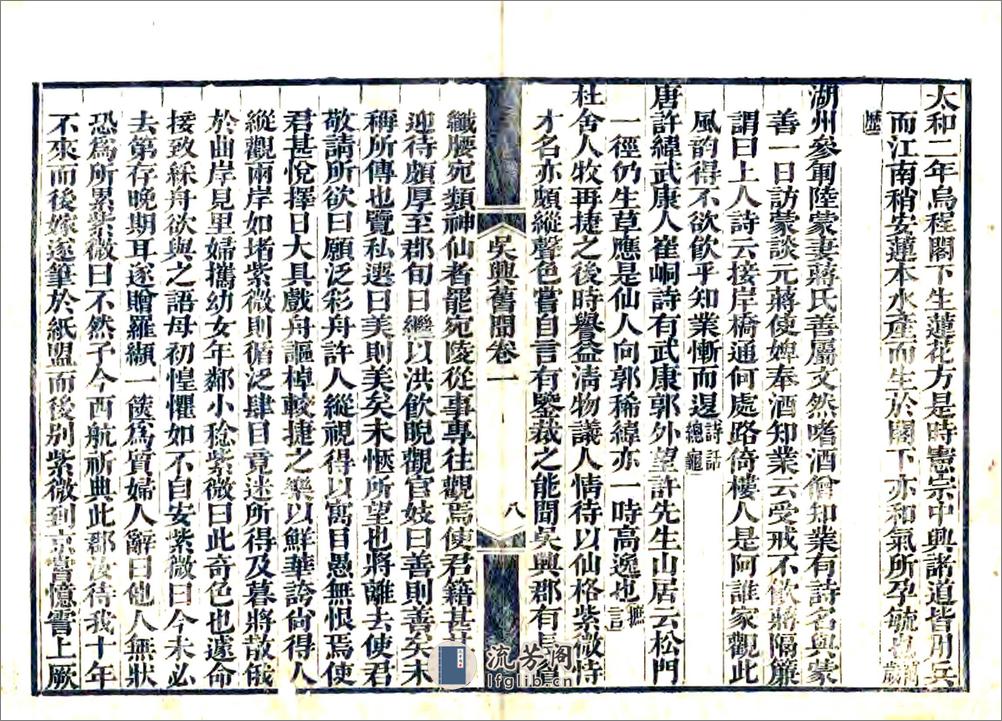 太和二年烏程閣下生蓮花方是時憲宗中興諸道皆用兵
而江南稍安蓮本水產而生於閣下亦和氣所孕毓也
湖州參軍陸蒙妻蔣氏善屬文然嗜酒僧知業有詩名與蒙
善一日訪蒙談元蔣使婢奉酒知業云受戒不飲蔣隔簾
謂曰上人詩云接岸橋通何處路倚樓人是阿誰家觀此
風韵得不欲飲乎知業慚而退詩話總龜
唐許緯武康人崔峒詩有武康郭外望許先生山居云松門
一徑仍生草應是仙人向郭稀緯亦一時高逸也
杜舍人牧再捷之後時譽益清物議人情待以仙格紫微恃
才名亦頗縱聲色嘗自言有鑒裁之能聞吳興郡有長
吳興舊聞卷一
八
纖腰宛類神仙者罷宛陵從事專往觀焉使君籍甚
迎待頗厚至郡旬日繼以洪飲睨觀官妓曰善則善矣未
稱所傳也覽私選曰美則美矣未愜所望也將離去使君
敬請所欲曰願泛彩舟許人縱視得以寓目愚無恨焉使
君甚悅擇日大具戲舟謳棹較捷之樂以鮮華誇尚得人
縱觀兩岸如堵紫微則循泛肆目竟迷所得及暮將散俄
於曲岸見里婦攜幼女年鄰小稔紫微曰此奇色也遽命
接致綵舟欲與之語母初惶懼如不自安紫微曰今未必
去第存晚期耳遂贈羅纈一篋為質婦人辭曰他人無狀
恐為所累紫微曰不然予今西航祈典此郡汝待我十年
不來而後嫁遂筆於紙盟而後別紫微到京嘗憶霅上厥
流芳閣
lfglib.cn